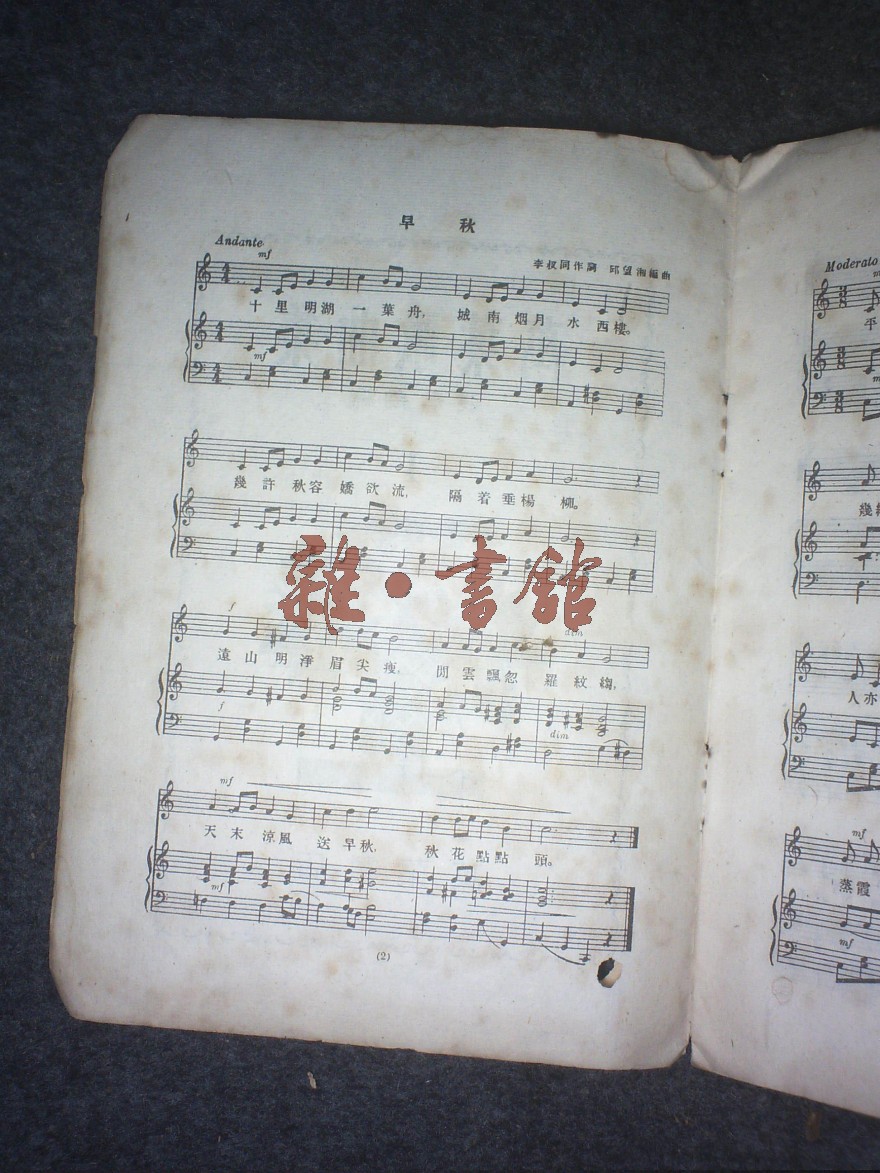 早秋
Andante
李叔同作詞 邱望湘編曲
mf
十里明湖一葉舟，城南烟月水西樓。
mf
幾許秋容嬌欲流，隔着垂楊柳。
雜·書館
f
dim
遠山明淨眉尖瘦，閒雲飄忽羅紋縐，
f
dim
mf
天末涼風送早秋，秋花點點頭。
mf
(2)
Moderato
平
幾
人亦
mf
蒸霞
mf